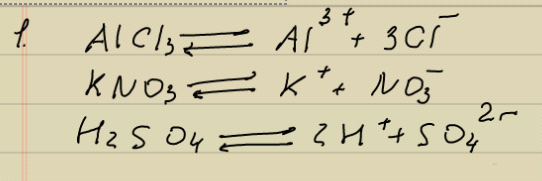 1. AlCl₃ ⇌ Al³⁺ + 3Cl⁻
KNO₃ ⇌ K⁺ + NO₃⁻
H₂SO₄ ⇌ 2H⁺ + SO₄²⁻